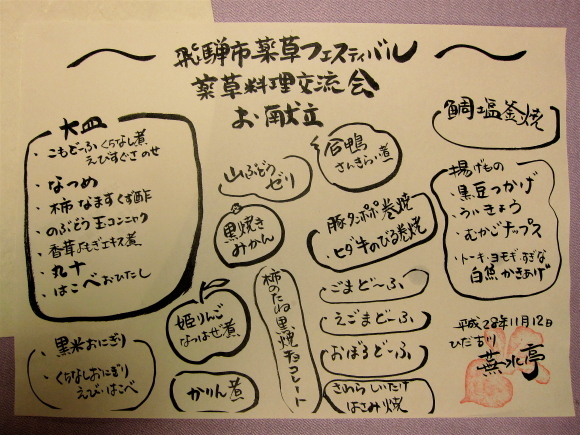 飛騨市薬草フェスティバル
薬草料理交流会
お献立
大皿
・こもどーふくちなし煮
えびすぐさのせ
・なつめ
・柿なますくず酢
・のぶどう玉コンニャク
・香茸よもぎエキス煮
・丸十
・はこべおひたし
・黒米おにぎり
・くちなしおにぎり
えび・はこべ
山ぶどう
ゼリー
合鴨
さんきらい煮
黒焼き
みかん
豚タンポポ巻焼
・ヒダ牛のびる巻焼
姫りんご
なつはぜ煮
かりん煮
柿のたね黒焼チョコレート
ごまどーふ
えごまどーふ
おばるどーふ
さわらしいたけ
はさみ焼
鯛塩釜焼
揚げもの
・黒豆つかげ
・ういきょう
・むかごチップス
・トーキ・ヨモギ・すぎな
白魚かきあげ
平成28年11月12日
ひだ古川
蕪水亭